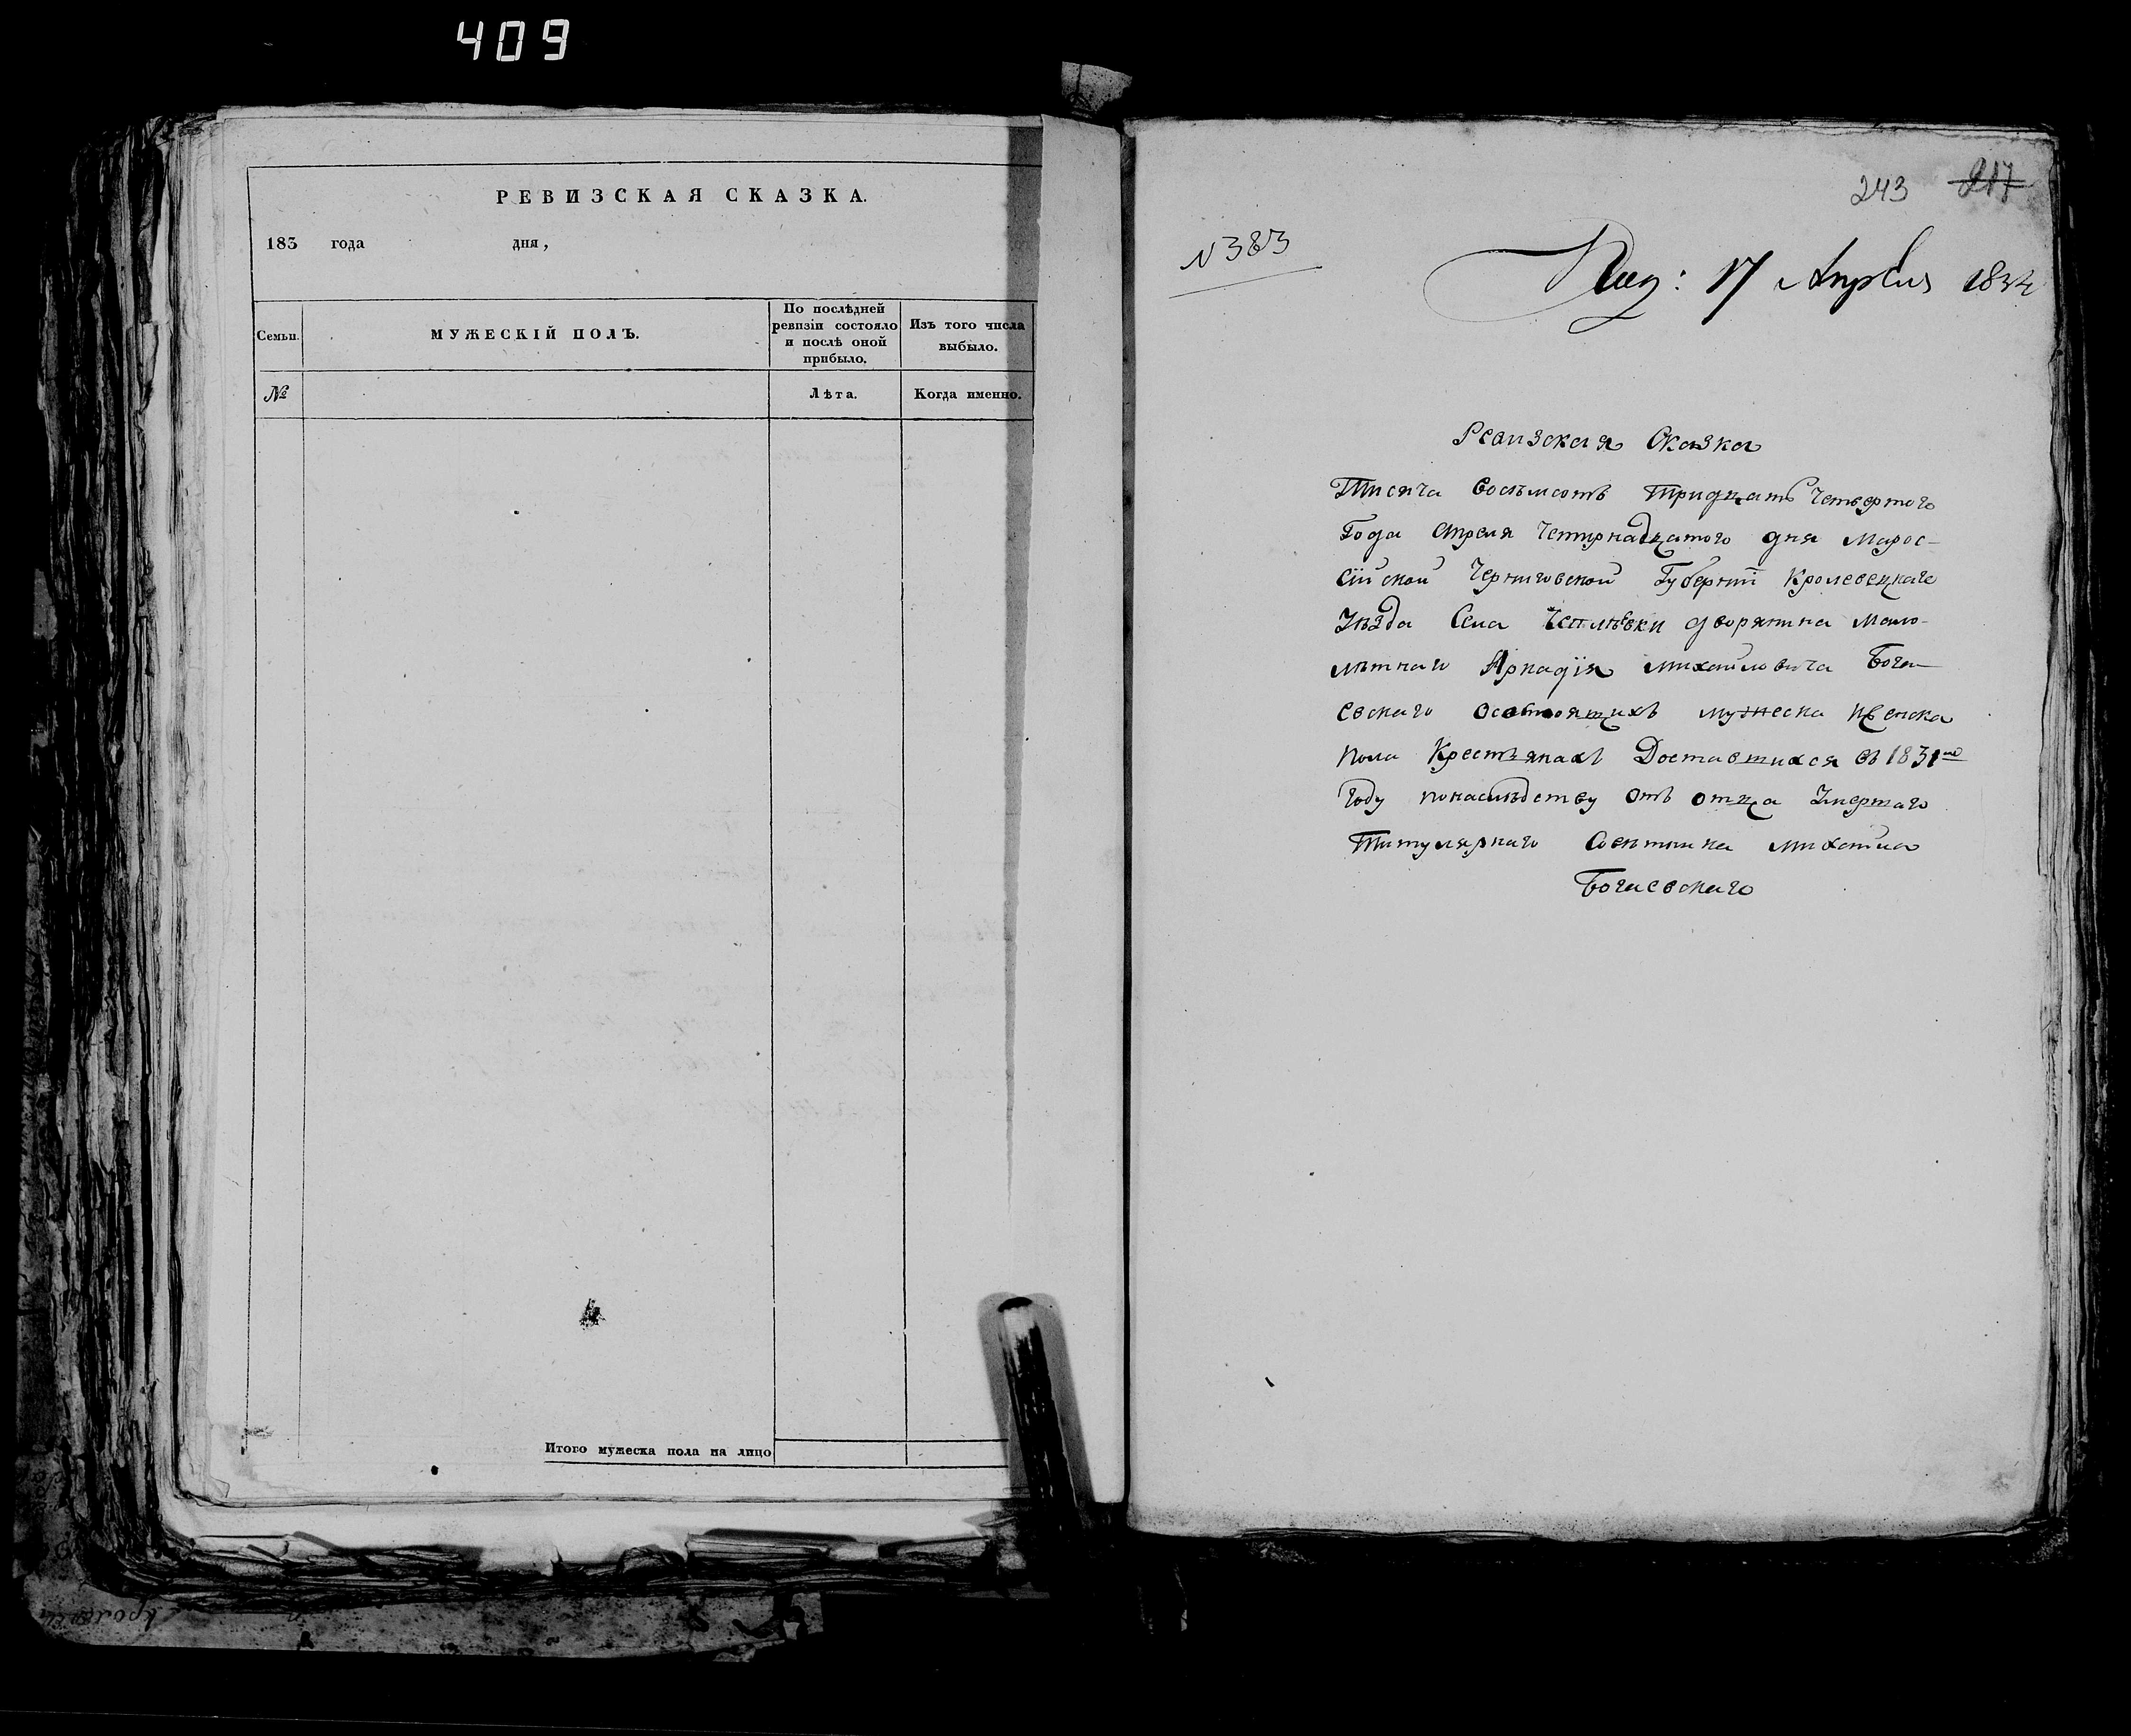 409
РЕВИЗСКАЯ СКАЗКА.
183 года дня,
Семьи.
МУЖЕСКІЙ ПОЛЪ.
По послѣдней ревизіи состояло и послѣ оной прибыло.
Изъ того числа выбыло.
№
Лѣта.
Когда именно.
Итого мужеска пола на лицо
243 217
N 383
Под: 17 Апрѣля 1834
Ревизская Сказка
Тисяча восѣмсотъ тридцать четвертого
Года апреля четирнадцатого дня Марос-
сійской Черниговской Губерніи Кролевецкаго
Уезда Села Чеплѣевки дворянина мало-
лѣтнаго Аркадія михайловича Бога-
евскаго осостоящихъ мужеска иженска
пола Крестьянахъ Доставшихся въ 1831мъ
Году понаслѣдству отъ отца Умершаго
Титулярнаго Советника михайла
Богаевскаго